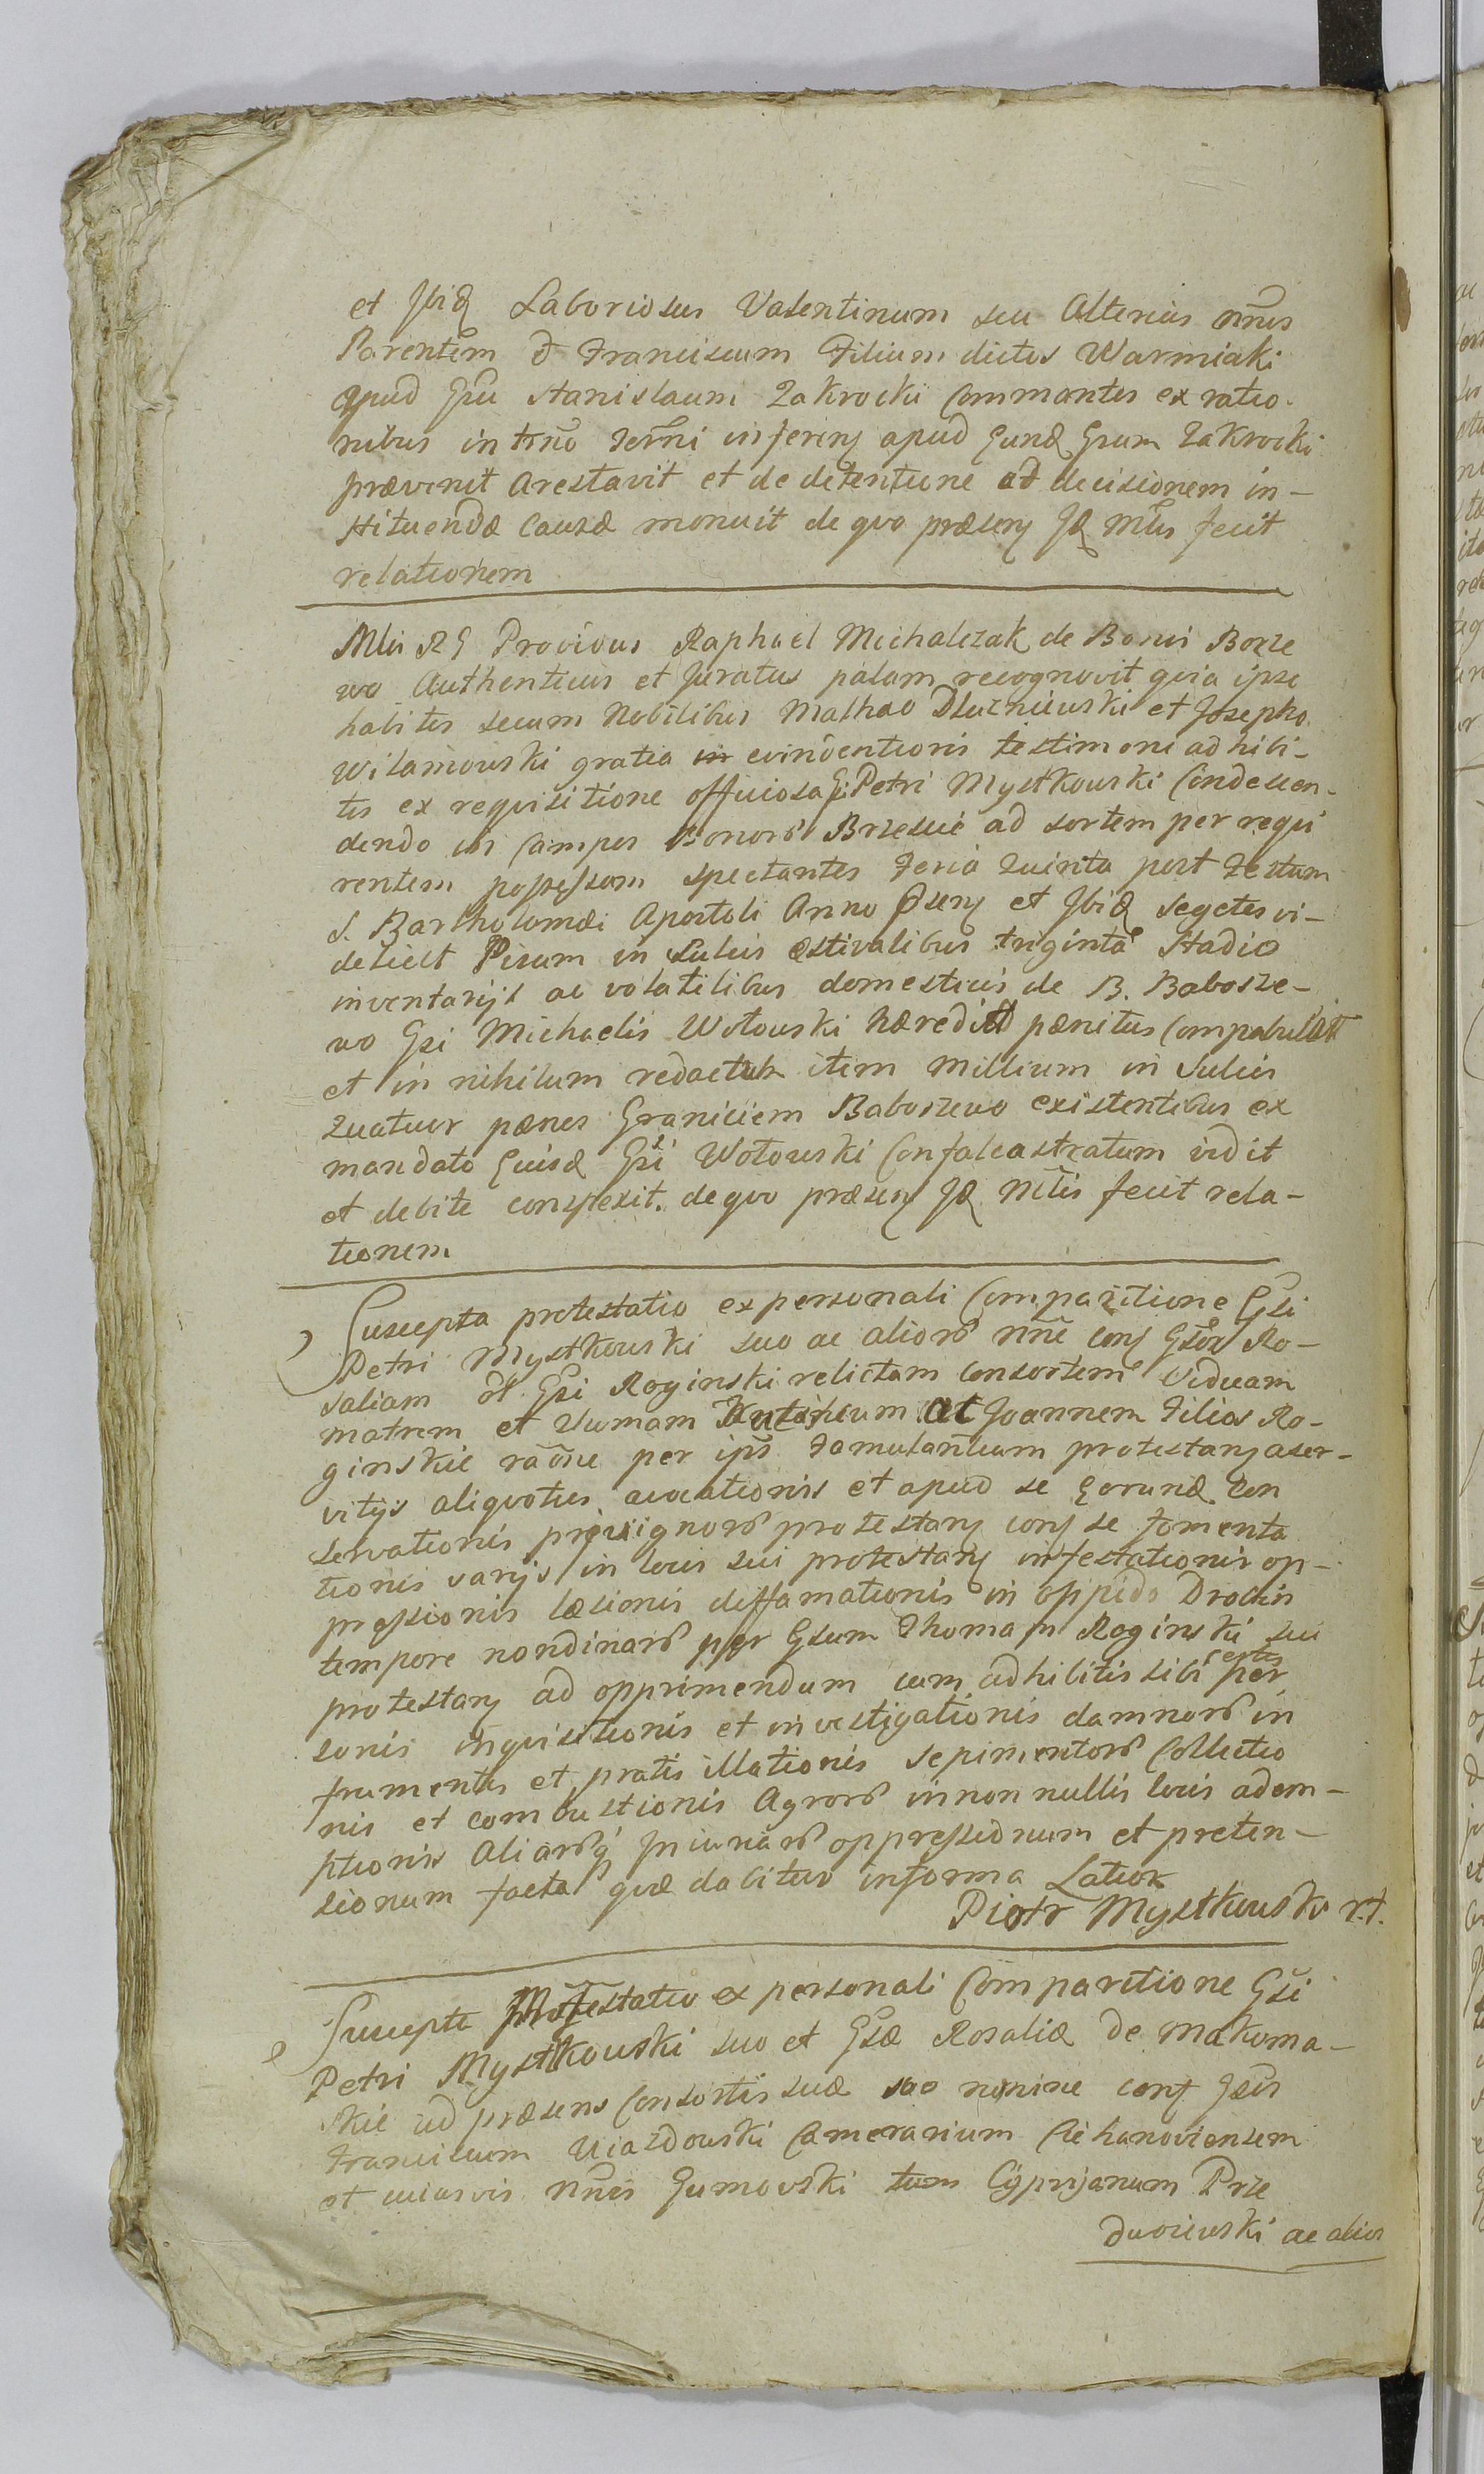 et Ibiq Laboriosus Valentinum seu Alterius nnis
Parentem & Franciscum Filium dictos Warmiaki
apud Gsu Stanislaum Zakrocki Commantes ex ratio-
nibus in trno Terrni inferens apud Eund Gsum Zakrocki
prævenit Arestavit et de detentione ad decisionem in-
stituendæ Causæ monuit de quo præsens Id Mlis fecit
relationem
Mlis RG Providus Raphael Michalczak de Bonis Borze
wo Authenticus et Juratus palam recognovit quia ipse
habitis secum Nobilibus Mathæo Dłuzniewski et Josepho
Wilamowski gratia evindentionis testimoni adhibi-
tis ex requisitione officiosa G. Petri Mystkowski Condescen-
dendo in Campos Bonor Brzescie ad sortem per requi
rentem possessam spectantes Feria Quinta post Festum
S. Bartholomæi Apostoli Anno præsens et Ibiq segetes vi-
delicet Pisum in Sulcis æstivalibus triginta Stadio
inventarijs ac volatilibus domesticis de B. Babosze-
wo Gsi Michaelis Wołowski hæredit pænitus Compabulatt
et in nihilum redactum item Millium in Sulcis
Quatuor pænes Graniciem Baboszewo existentibus ex
mandato Eiusd Gsi Wołowski Confalcastratum vidit
et debite conspexit. de quo præsens Id Mlis fecit rela-
tionem
Suscepta protestatio ex personali Comparitione Gsi
Petri Mystkowski suo ac alior nne conj Gsos Ro-
saliam ol Gsi Roginski relictam Consortem Viduam
matrem et Thomam ac Joannem Filios Ro-
ginskie raône per ips Famulantium protestanj a ser-
vitijs aliquoties avocationis et apud se Eorund Con
servationis privignor protestanj conj se fomenta
tionis varijs in locis sui protestanj infestationis op-
pressionis læsionis diffamationis in oppido Drochin
tempore nondinar per Gsum Thomam Roginski sui
protestanj ad opprimendum cum adhibitis sibi certis per
sonis inquisitionis et investigationis damnor in
frumentis et pratis illationis sepimentor Collectio
nis et combustionis Agror in non nullis locis adem-
ptionis Aliarq Iniuriar oppressionum et preten-
sionum facta quæ dabitur in forma Latior
Piotr Mystkowski r.t.
Suscepta Protestatio ex personali Comparitione Gsi
Petri Mystkowski suo et Gsæ Rosaliæ de Makoma-
skie ad præsens Consortis suæ nomine conj Gsos
Franciscum Uiazdowski Camerarium Ciehanoviensem
et cuiusvis nnis Gumowski tum Cyprijanum Prze
duoiewski ac alios